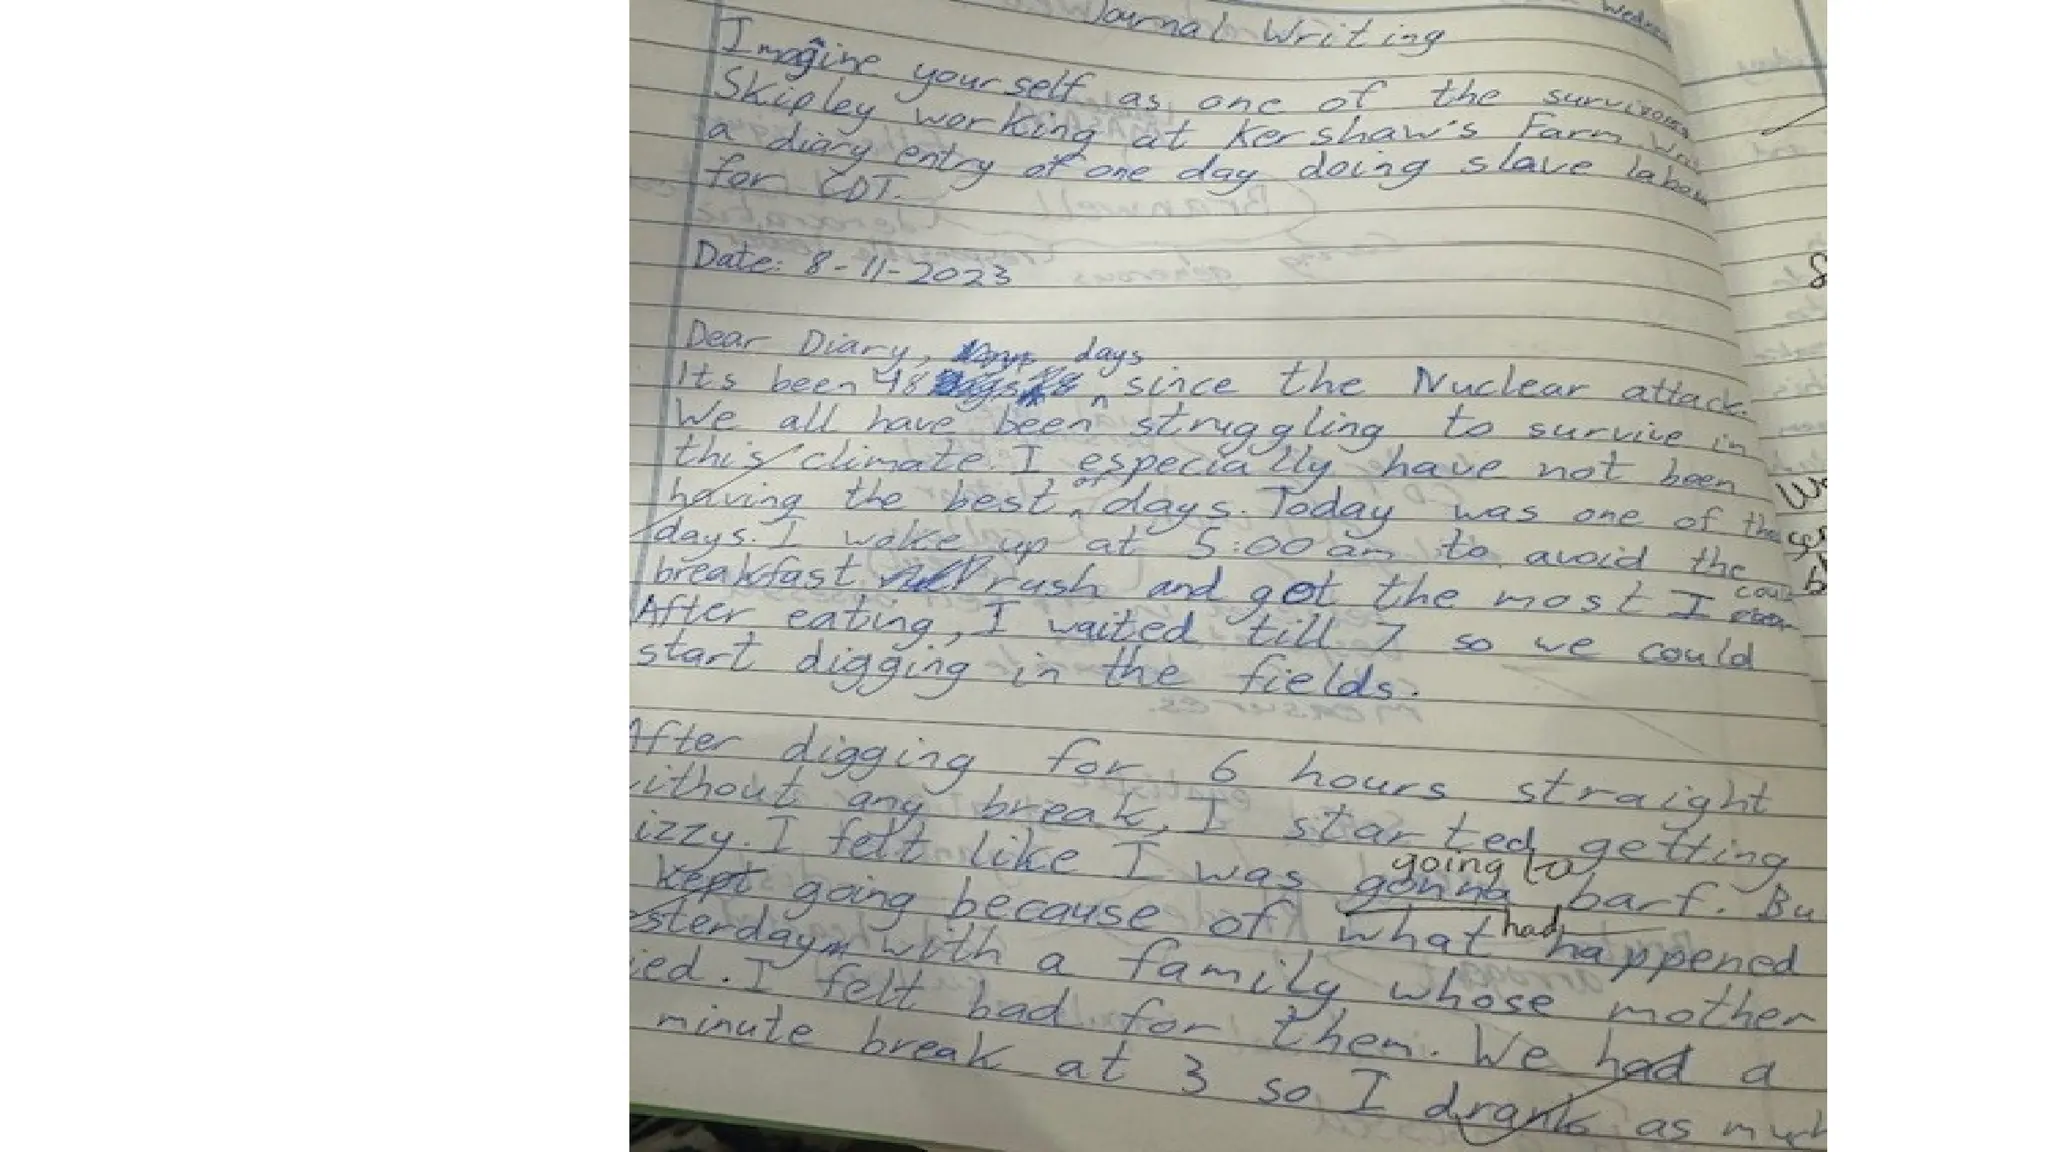 Journal Writing
Imagine yourself as one of the survivors
Skipley working at Kershaw's Farm.
a diary entry of one day doing slave labou
for CDT.
Date: 8-11-2023
Dear Diary,
days
Its been 48 since the Nuclear attack.
We all have been struggling to survive in
this climate. I especially have not been
having the best of days. Today was one of
days. I woke up at 5:00 am to avoid the
breakfast rush and got the most I could
After eating, I waited till 7 so we could
start digging in the fields.
After digging for 6 hours straight
ithout any break, I started getting
izzy. I felt like I was gonna going to barf. Bu
kept going because of what had happened
esterday with a family whose mother
ied. I felt bad for them. We had a
minute break at 3 so I drank as much